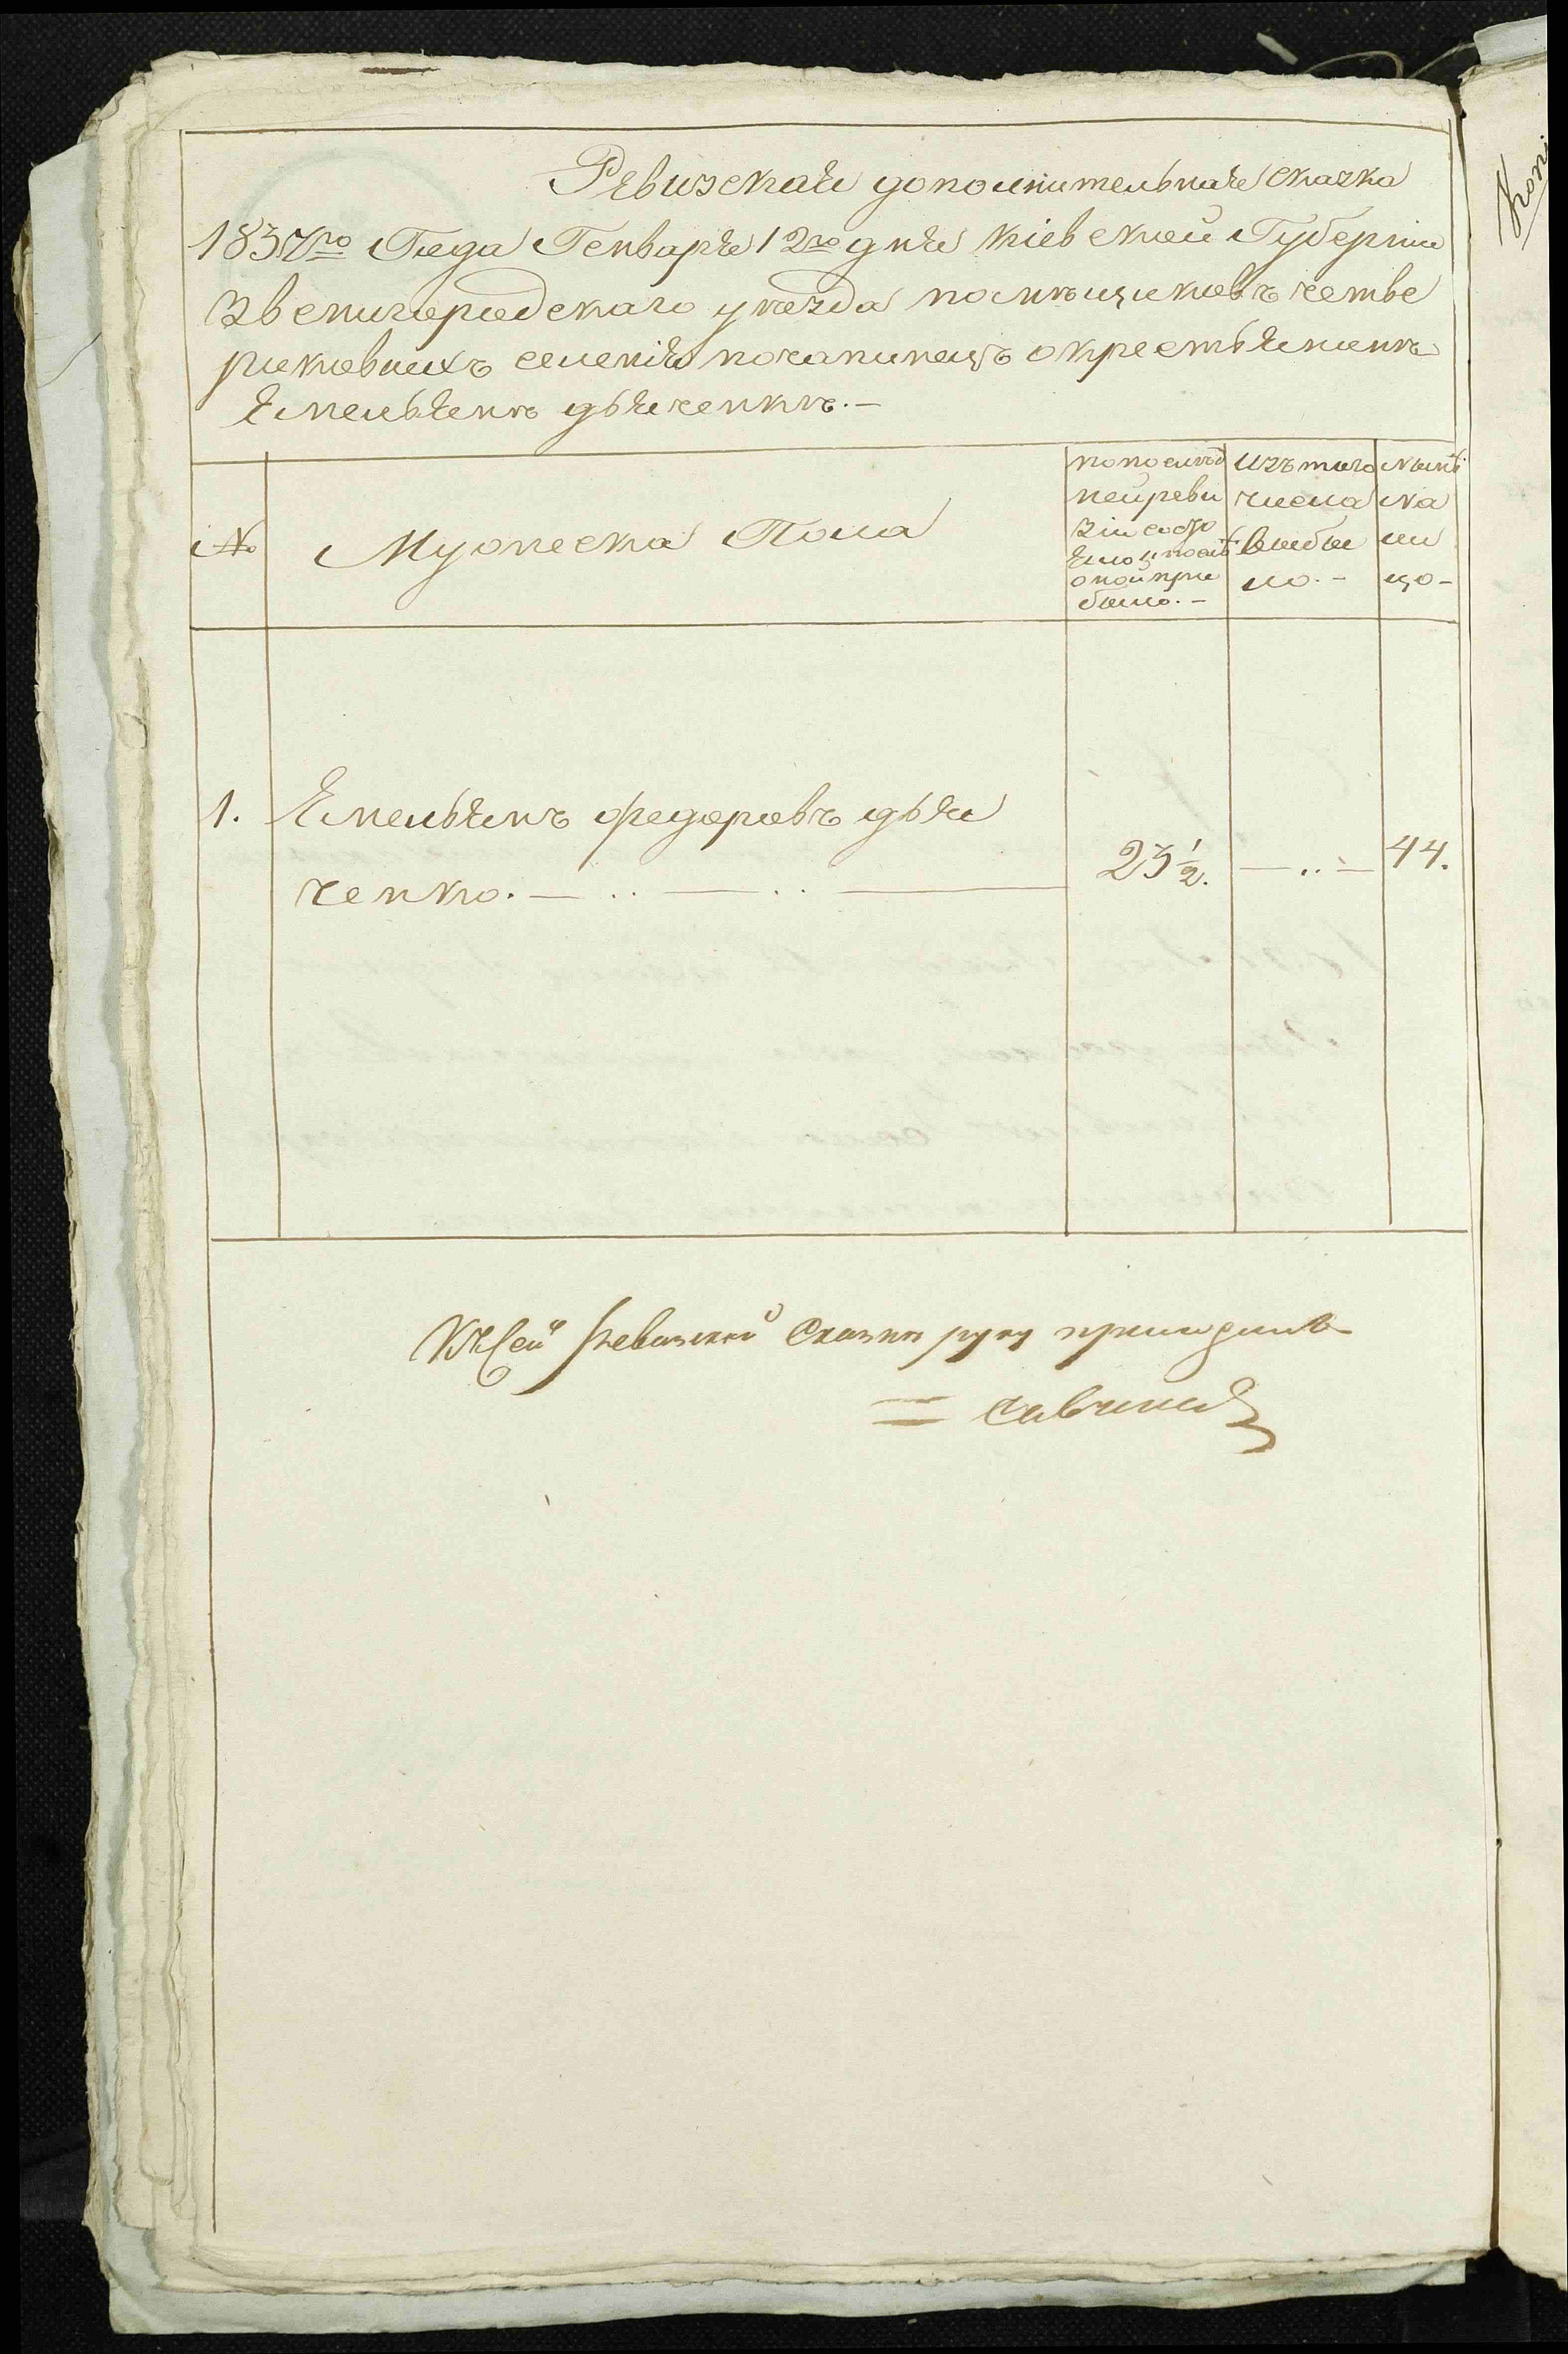 Ревизская дополнительная сказка
1837го Года Генваря 12го дня Кіевской Губерніи
Звенигородскаго уѣзда помѣщиковъ четве
риковыхъ селенія почапинецъ о крестьянинѣ
Емельянѣ дьяченкѣ.—
№
Мужеска Пола
по послѣд
ней реви
зіи состо
яло и послѣ
оной при
было.—
изъ того
числа
выбы
ло.—
Нынѣ
На
ли
цо—
1. Емельянъ федоровъ дья
ченко.— .. — .. —
23 1/2. — .. — 44.
Къ сей Ревизской Сказкѣ руку приложилъ